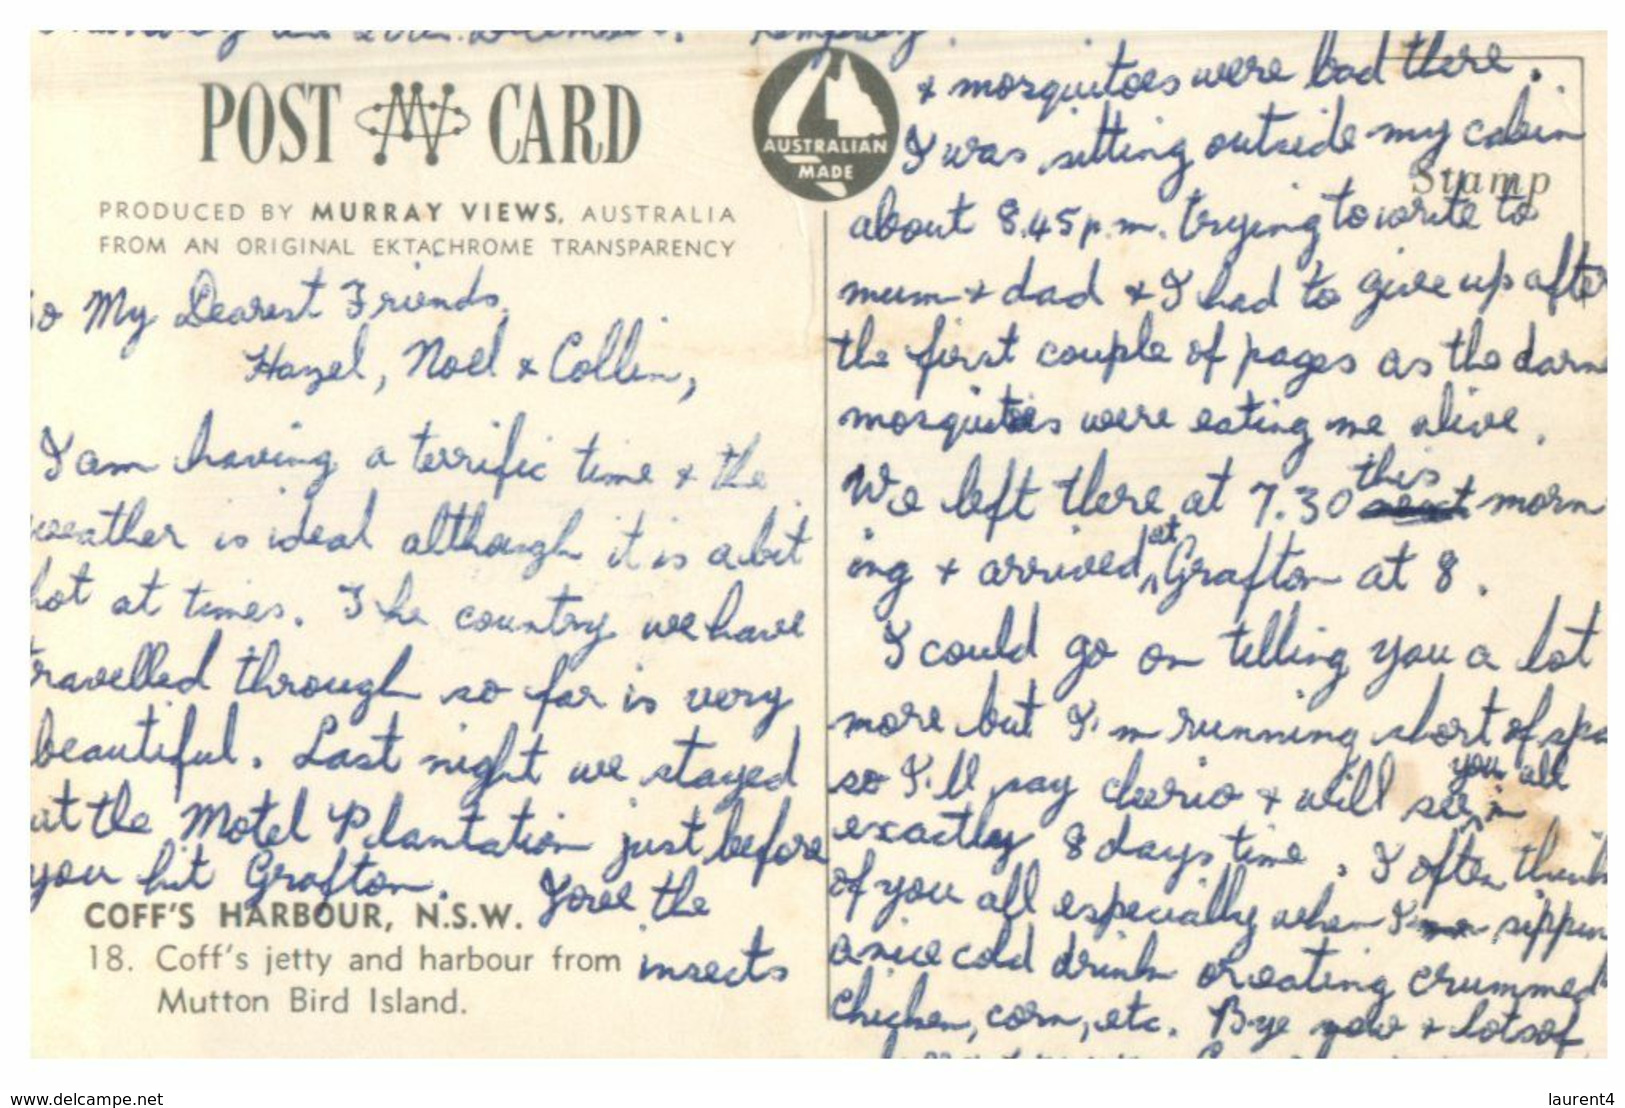 POST CARD
AUSTRALIAN
MADE
PRODUCED BY MURRAY VIEWS, AUSTRALIA
FROM AN ORIGINAL EKTACHROME TRANSPARENCY
Stamp
To My Dearest Friends,
Hazel, Noel & Collin,
I am having a terrific time & the
weather is ideal although it is a bit
hot at times. The country we have
travelled through so far is very
beautiful. Last night we stayed
at the Motel Plantation just before
you hit Grafton. Gree the
COFF'S HARBOUR, N.S.W.
18. Coff's jetty and harbour from
Mutton Bird Island.
insects
& mosquitoes were bad there.
I was sitting outside my cabin
about 8.45 p.m. trying to write to
mum & dad & I had to give up after
the first couple of pages as the darn
mosquitoes were eating me alive.
We left there at 7.30 this morn
ing & arrived at Grafton at 8.
I could go on telling you a lot
more but I'm running short of spa
so I'll say cheerio & will see you all in
exactly 8 days time. I often think
of you all especially when I'm sippin
a nice cold drink or eating crummed
chicken, corn, etc. Bye now & lots of
www.delcampe.net
laurent4